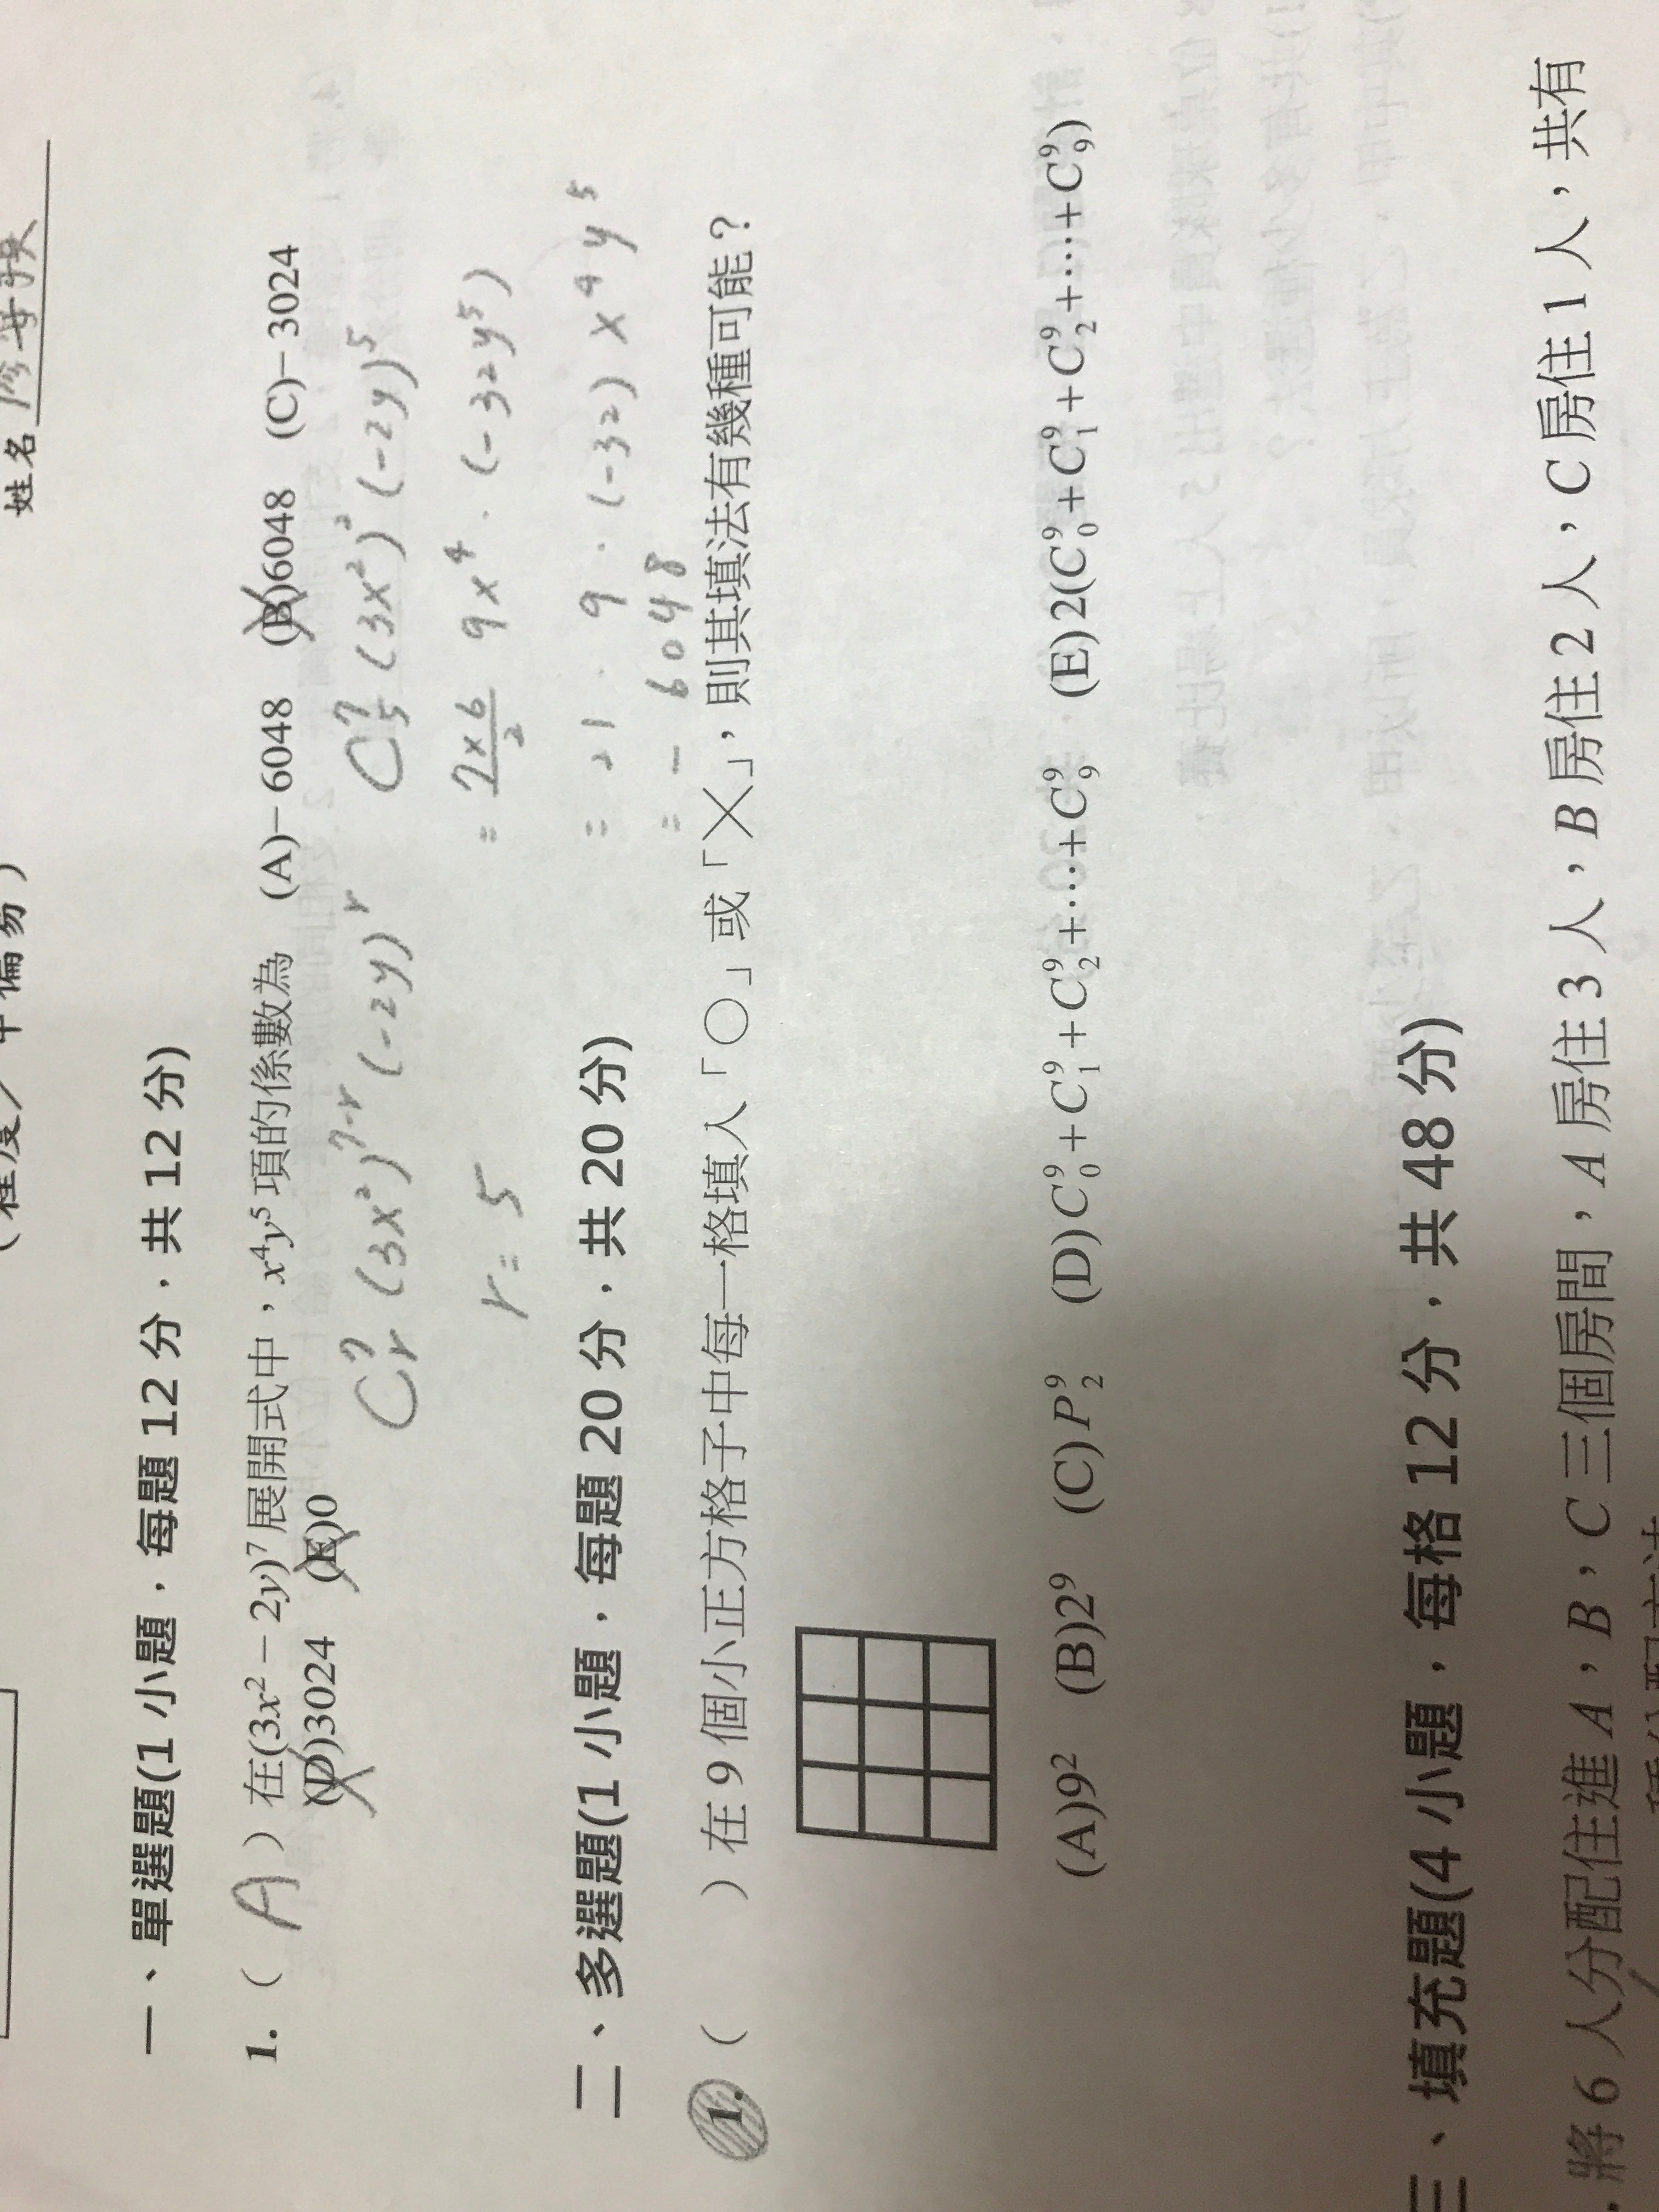 姓名
(程度／中偏易)
一、單選題(1 小題，每題 12 分，共 12 分)
1. ( A ) 在(3x² − 2y)⁷ 展開式中，x⁴y⁵ 項的係數為 (A)− 6048 (B)6048 (C)− 3024
(D)3024 (E)0
C⁷ᵣ (3x²)⁷⁻ʳ (-2y)ʳ
r = 5
C⁷₅ (3x²)² (-2y)⁵
= 7×6/2 9x⁴ · (-32y⁵)
= 21 · 9 · (-32) x⁴ y⁵
= - 6048
二、多選題(1 小題，每題 20 分，共 20 分)
1. ( ) 在 9 個小正方格子中每一格填入「○」或「╳」，則其填法有幾種可能？
(A)9² (B)2⁹ (C)P⁹₂ (D)C⁹₀ + C⁹₁ + C⁹₂ + … + C⁹₉ (E)2(C⁹₀ + C⁹₁ + C⁹₂ + … + C⁹₉)
三、填充題(4 小題，每格 12 分，共 48 分)
將 6 人分配住進 A，B，C 三個房間，A 房住 3 人，B 房住 2 人，C 房住 1 人，共有